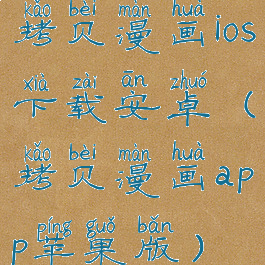 kǎo bèi màn huà
拷贝漫画ios
xià zài ān zhuó
下载安卓（
kǎo bèi màn huà
拷贝漫画ap
píng guǒ bǎn
p苹果版）